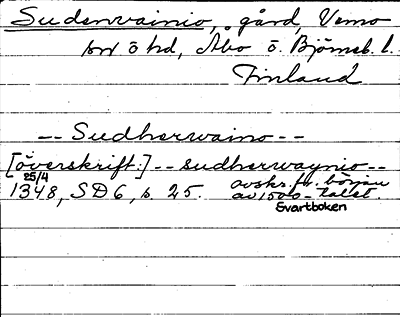 Sudenvainio, gård, Vemo
sn o hd, Åbo o. Björneb. l.
Finland
-- Sudherwaino --
[överskrift:] -- sudherwaynio --
25/4
1348, SD 6, s. 25. avskr. fr. början
av 1500-talet.
Svartboken